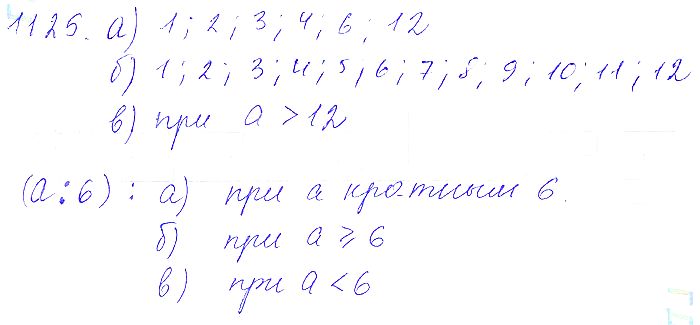 1125. а) 1; 2; 3; 4; 6; 12
б) 1; 2; 3; 4; 5; 6; 7; 8; 9; 10; 11; 12
в) при а > 12
(а : 6) : а) при а кратным 6.
б) при а ⩾ 6
в) при а < 6